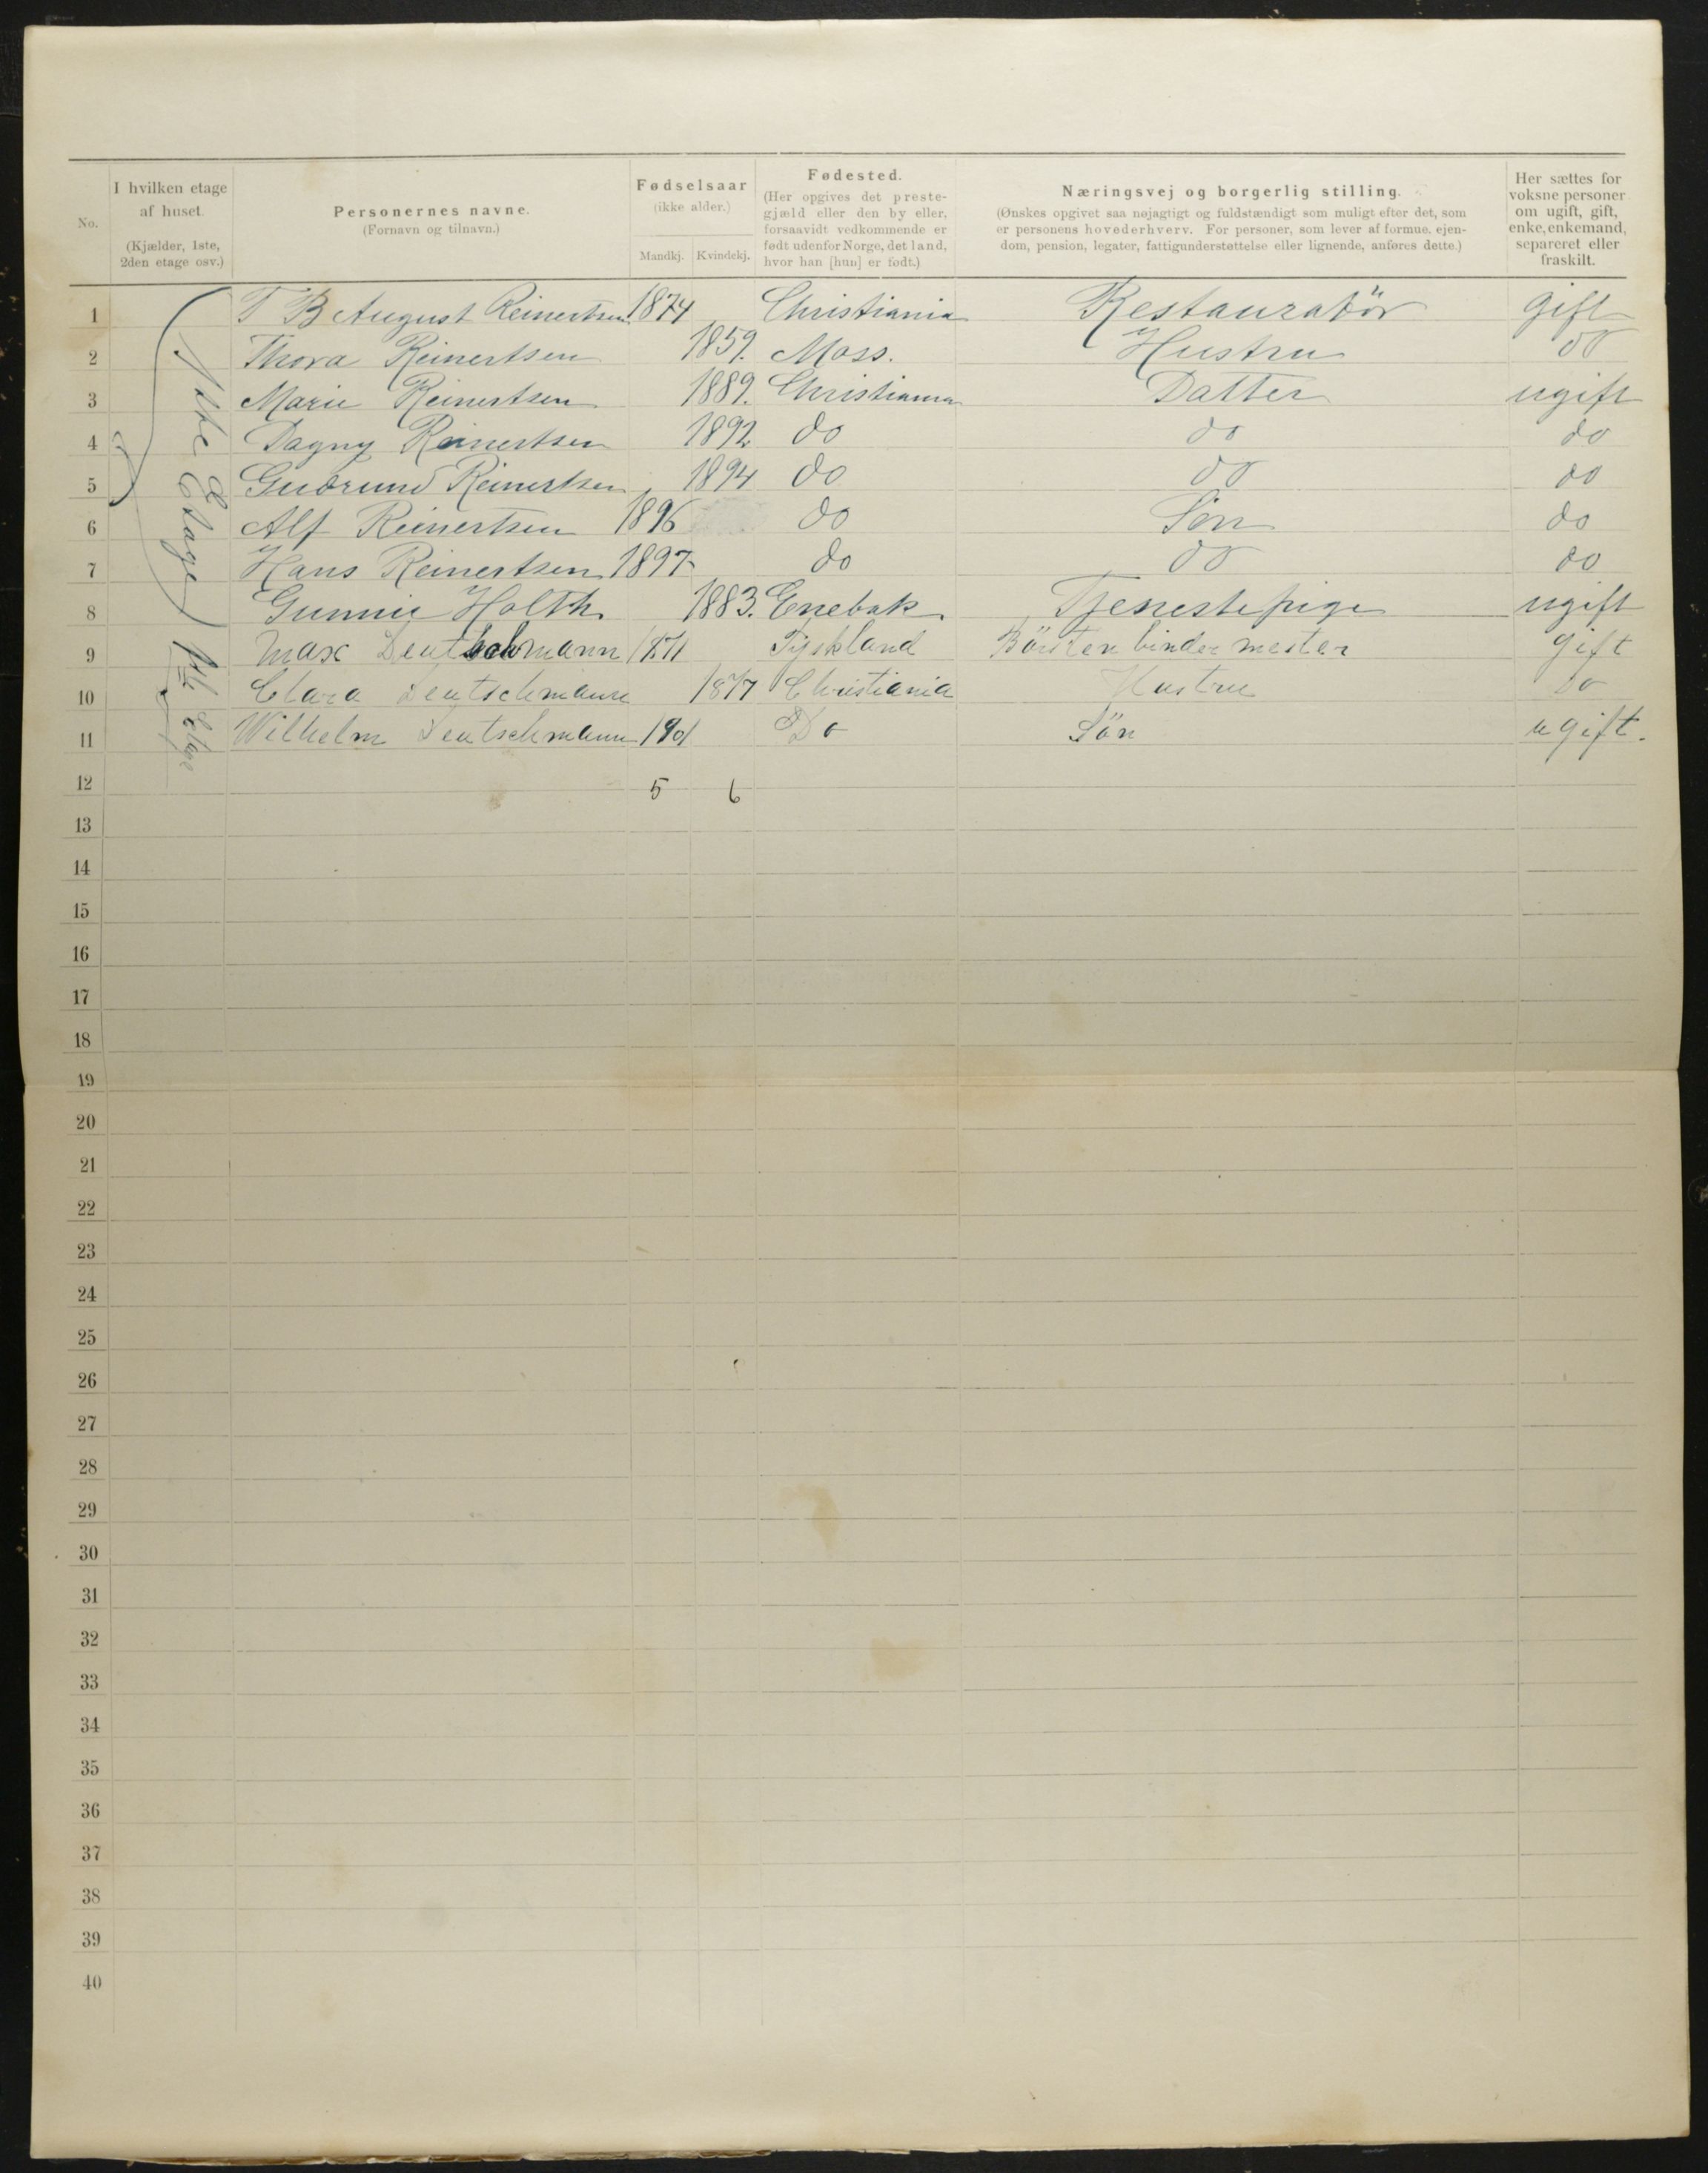 No.
I hvilken etage
af huset.
(Kjælder, 1ste,
2den etage osv.)
Personernes navne.
(Fornavn og tilnavn.)
Fødselsaar
(ikke alder.)
Mandkj. Kvindekj.
Fødested.
(Her opgives det preste-
gjæld eller den by eller,
forsaavidt vedkommende er
født udenfor Norge, det land,
hvor han [hun] er født.)
Næringsvej og borgerlig stilling.
(Ønskes opgivet saa nøjagtigt og fuldstændigt som muligt efter det, som
er personens hovederhverv. For personer, som lever af formue, ejen-
dom, pension, legater, fattigunderstøttelse eller lignende, anføres dette.)
Her sættes for
voksne personer
om ugift, gift,
enke, enkemand,
separeret eller
fraskilt.
1 T B August Reinertsen 1874 Christiania Restauratör gift
2 Thora Reinertsen 1859. Moss. Hustru do
3 Marie Reinertsen 1889. Christiania Datter ugift
4 Dagny Reinertsen 1892 do do do
5 Gudrund Reinertsen 1894 do do do
6 Alf Reinertsen 1896 do Sön do
7 Hans Reinertsen 1897 do do do
8 Gunnie Holth 1883. Enebak Tjenestepige ugift
9 Max Deutschmann 1871 Tyskland Börstenbindermester gift
10 Clara Deutschmann 1877 Christiania Hustru do
11 Wilhelm Deutschmann 1901 Do Sön ugift.
Etage
Etage
12 5 6
13
14
15
16
17
18
19
20
21
22
23
24
25
26
27
28
29
30
31
32
33
34
35
36
37
38
39
40